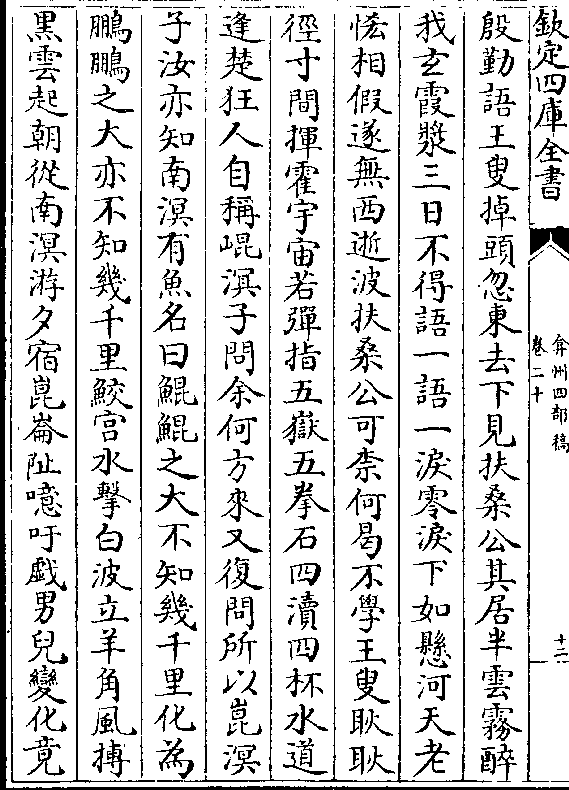 欽定四庫全書
弇州四部稿
卷二十
十二
殷勤語王叟掉頭忽東去下見扶桑公其居半雲霧醉
我玄霞漿三日不得語一語一淚零淚下如懸河天老
恡相假遂無西逝波扶桑公可柰何曷不學王叟耿耿
徑寸間揮霍宇宙若彈指五嶽五拳石四瀆四杯水道
逢楚狂人自稱崐溟子問余何方來又復問所以崑溟
子汝亦知南溟有魚名曰鯤鯤之大不知幾千里化為
鵬鵬之大亦不知幾千里鮫宮水擊白波立羊角風摶
黑雲起朝從南溟游夕宿崑崙阯噫吁戯男兒變化竟